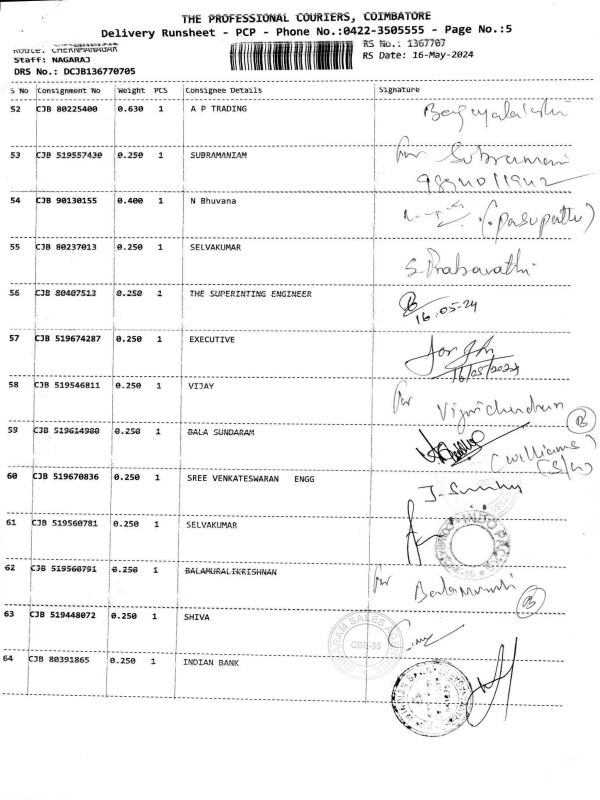 THE PROFESSIONAL COURIERS, COIMBATORE
Delivery Runsheet - PCP - Phone No.:0422-3505555 - Page No.:5
Route: CHERANMANAGAR
RS No.: 1367707
Staff: NAGARAJ
RS Date: 16-May-2024
DRS No.: DCJB136770705
S No Consignment No Weight PCS Consignee Details Signature
52 CJB 80225400 0.630 1 A P TRADING
53 CJB 519557430 0.250 1 SUBRAMANIAM For Subramani
54 CJB 90130155 0.400 1 N Bhuvana (Pasupathi)
55 CJB 80237013 0.250 1 SELVAKUMAR S. Prabavathi
56 CJB 80407513 0.250 1 THE SUPERINTING ENGINEER
16.05-24
57 CJB 519674287 0.250 1 EXECUTIVE
16/05/2024
58 CJB 519546811 0.250 1 VIJAY For Vijayichandran
59 CJB 519614980 0.250 1 BALA SUNDARAM (Williams)
(S/W)
60 CJB 519670836 0.250 1 SREE VENKATESWARAN ENGG
61 CJB 519560781 0.250 1 SELVAKUMAR
62 CJB 519560791 0.250 1 BALAMURALIKRISHNAN For Balamurali
63 CJB 519448072 0.250 1 SHIVA
CBE-35
64 CJB 80391865 0.250 1 INDIAN BANK